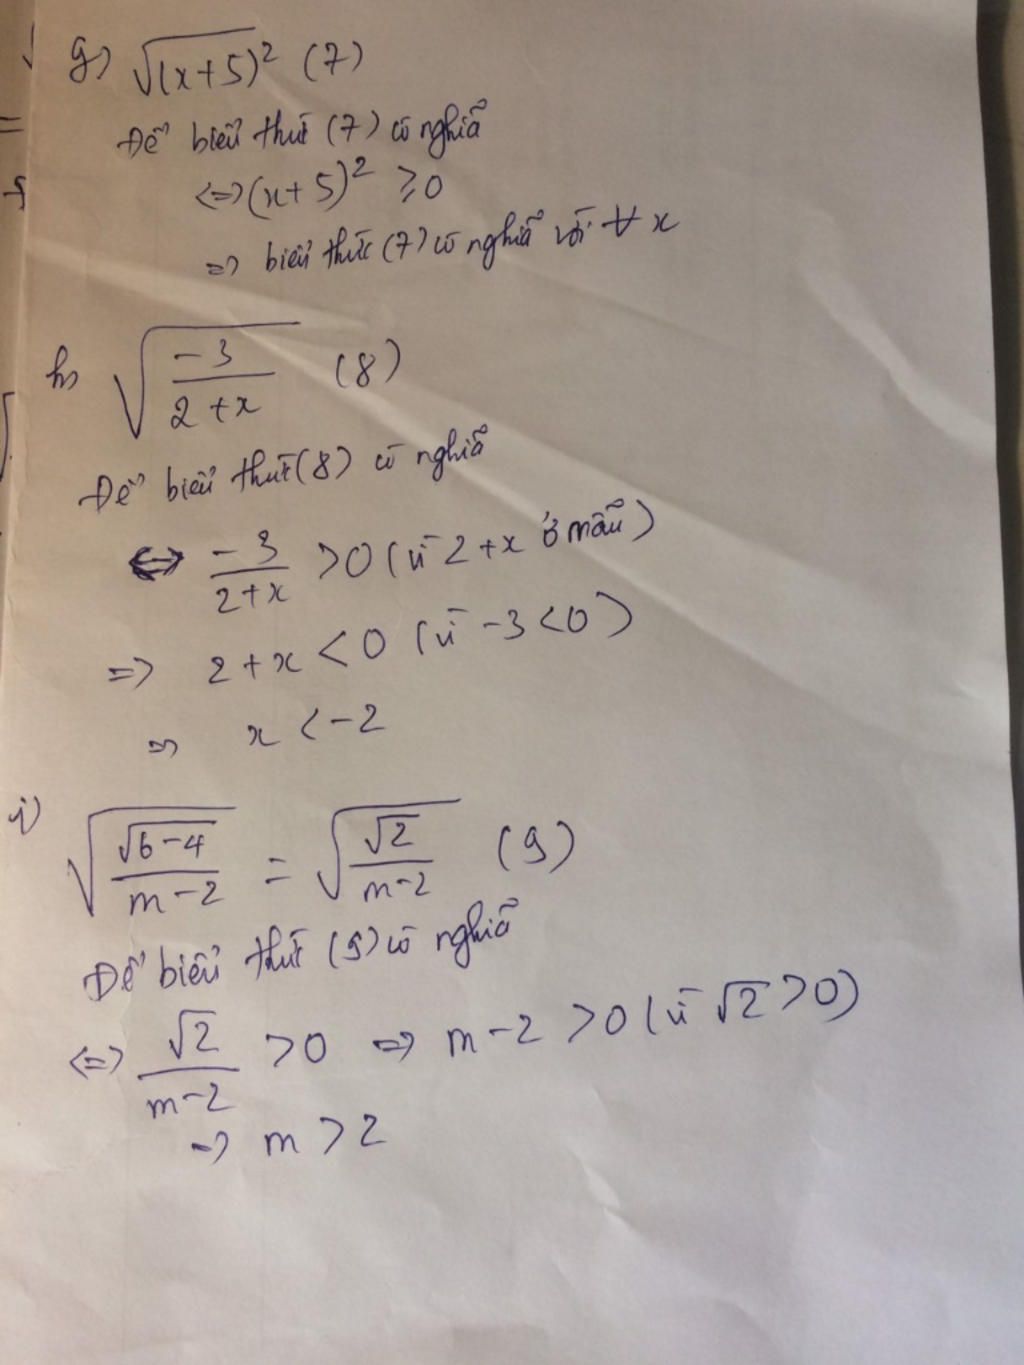 g) √(x+5)² (7)
Để biểu thức (7) có nghĩa
<=> (x+5)² ⩾0
=> biểu thức (7) có nghĩa với ∀ x
h) √(-3/(2+x)) (8)
Để biểu thức (8) có nghĩa
<=> -3/(2+x) >0 (vì 2+x ở mẫu)
=> 2+x <0 (vì -3<0)
=> x <-2
i) √(√(6-4)/(m-2)) = √(√2/(m-2)) (9)
Để biểu thức (9) có nghĩa
<=> √2/(m-2) >0 => m-2 >0 (vì √2 >0)
=> m >2